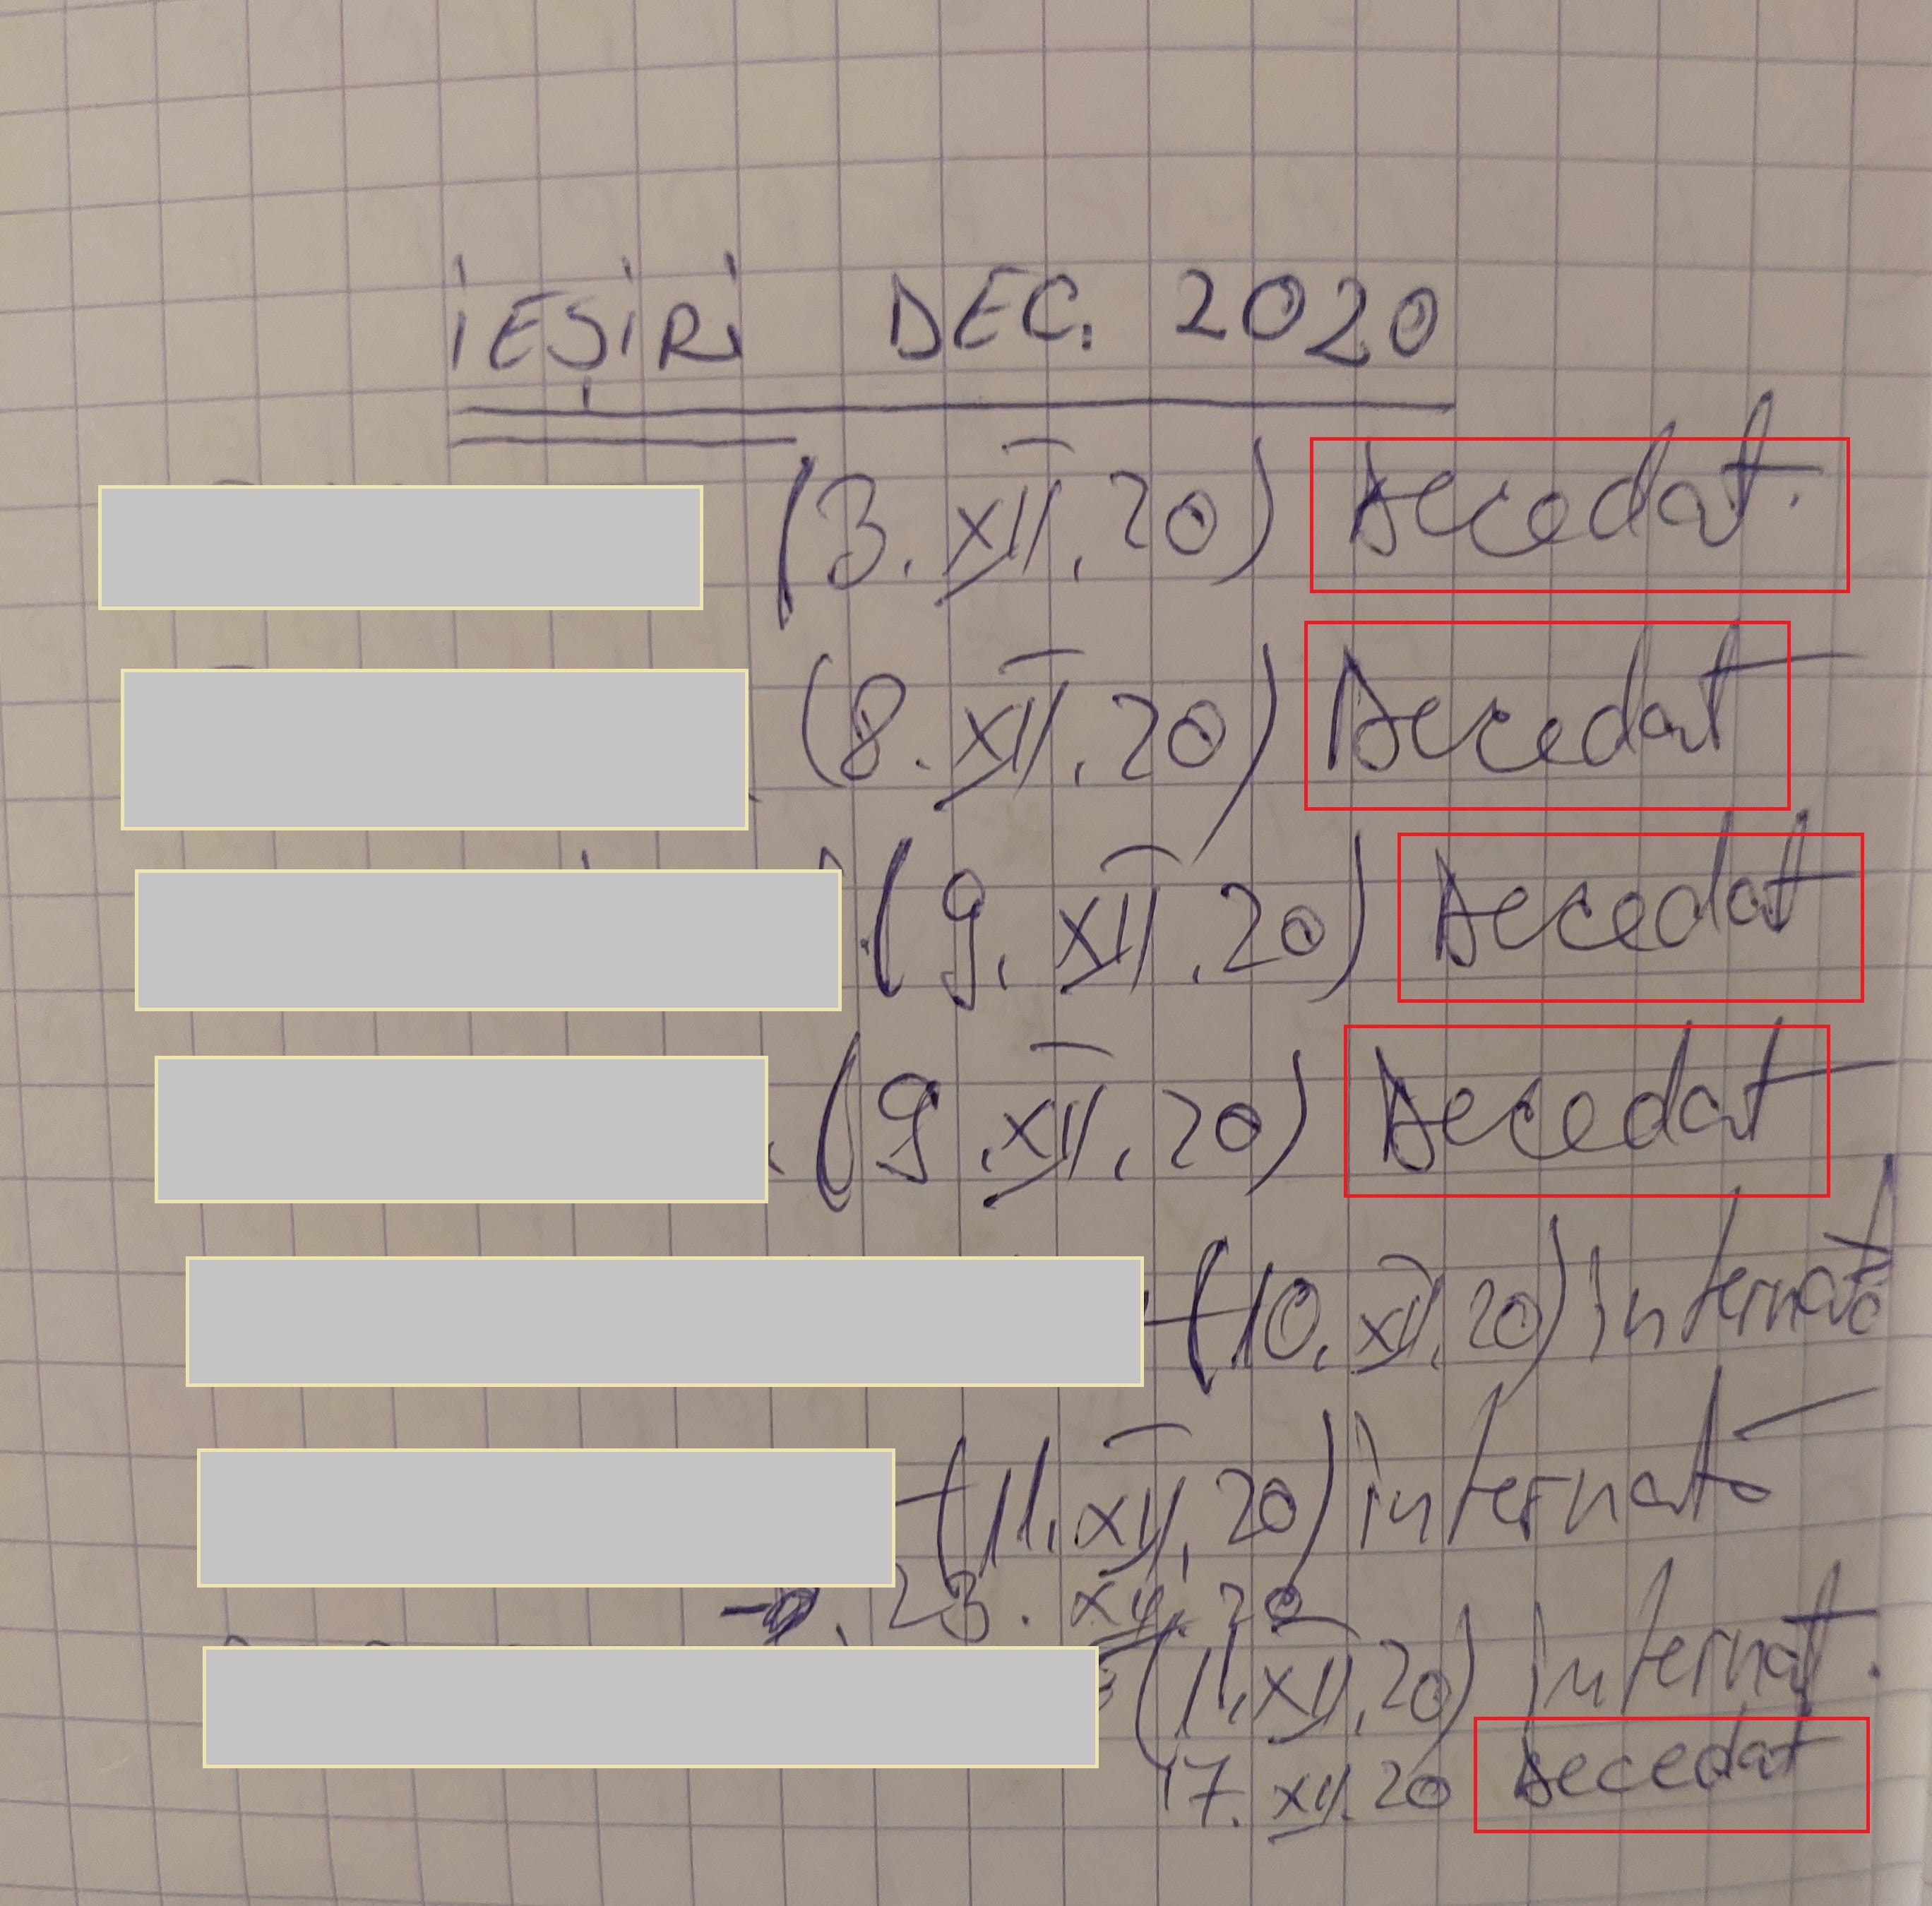 IEȘIRI DEC. 2020
(3.XII.20) Decedat.
(8.XII.20) Decedat
(9.XII.20) Decedat
(9.XII.20) Decedat
(10.XII.20) internată
(11.XII.20) internat
23.XII.20
(11.XII.20) internat.
17.XII.20 Decedat